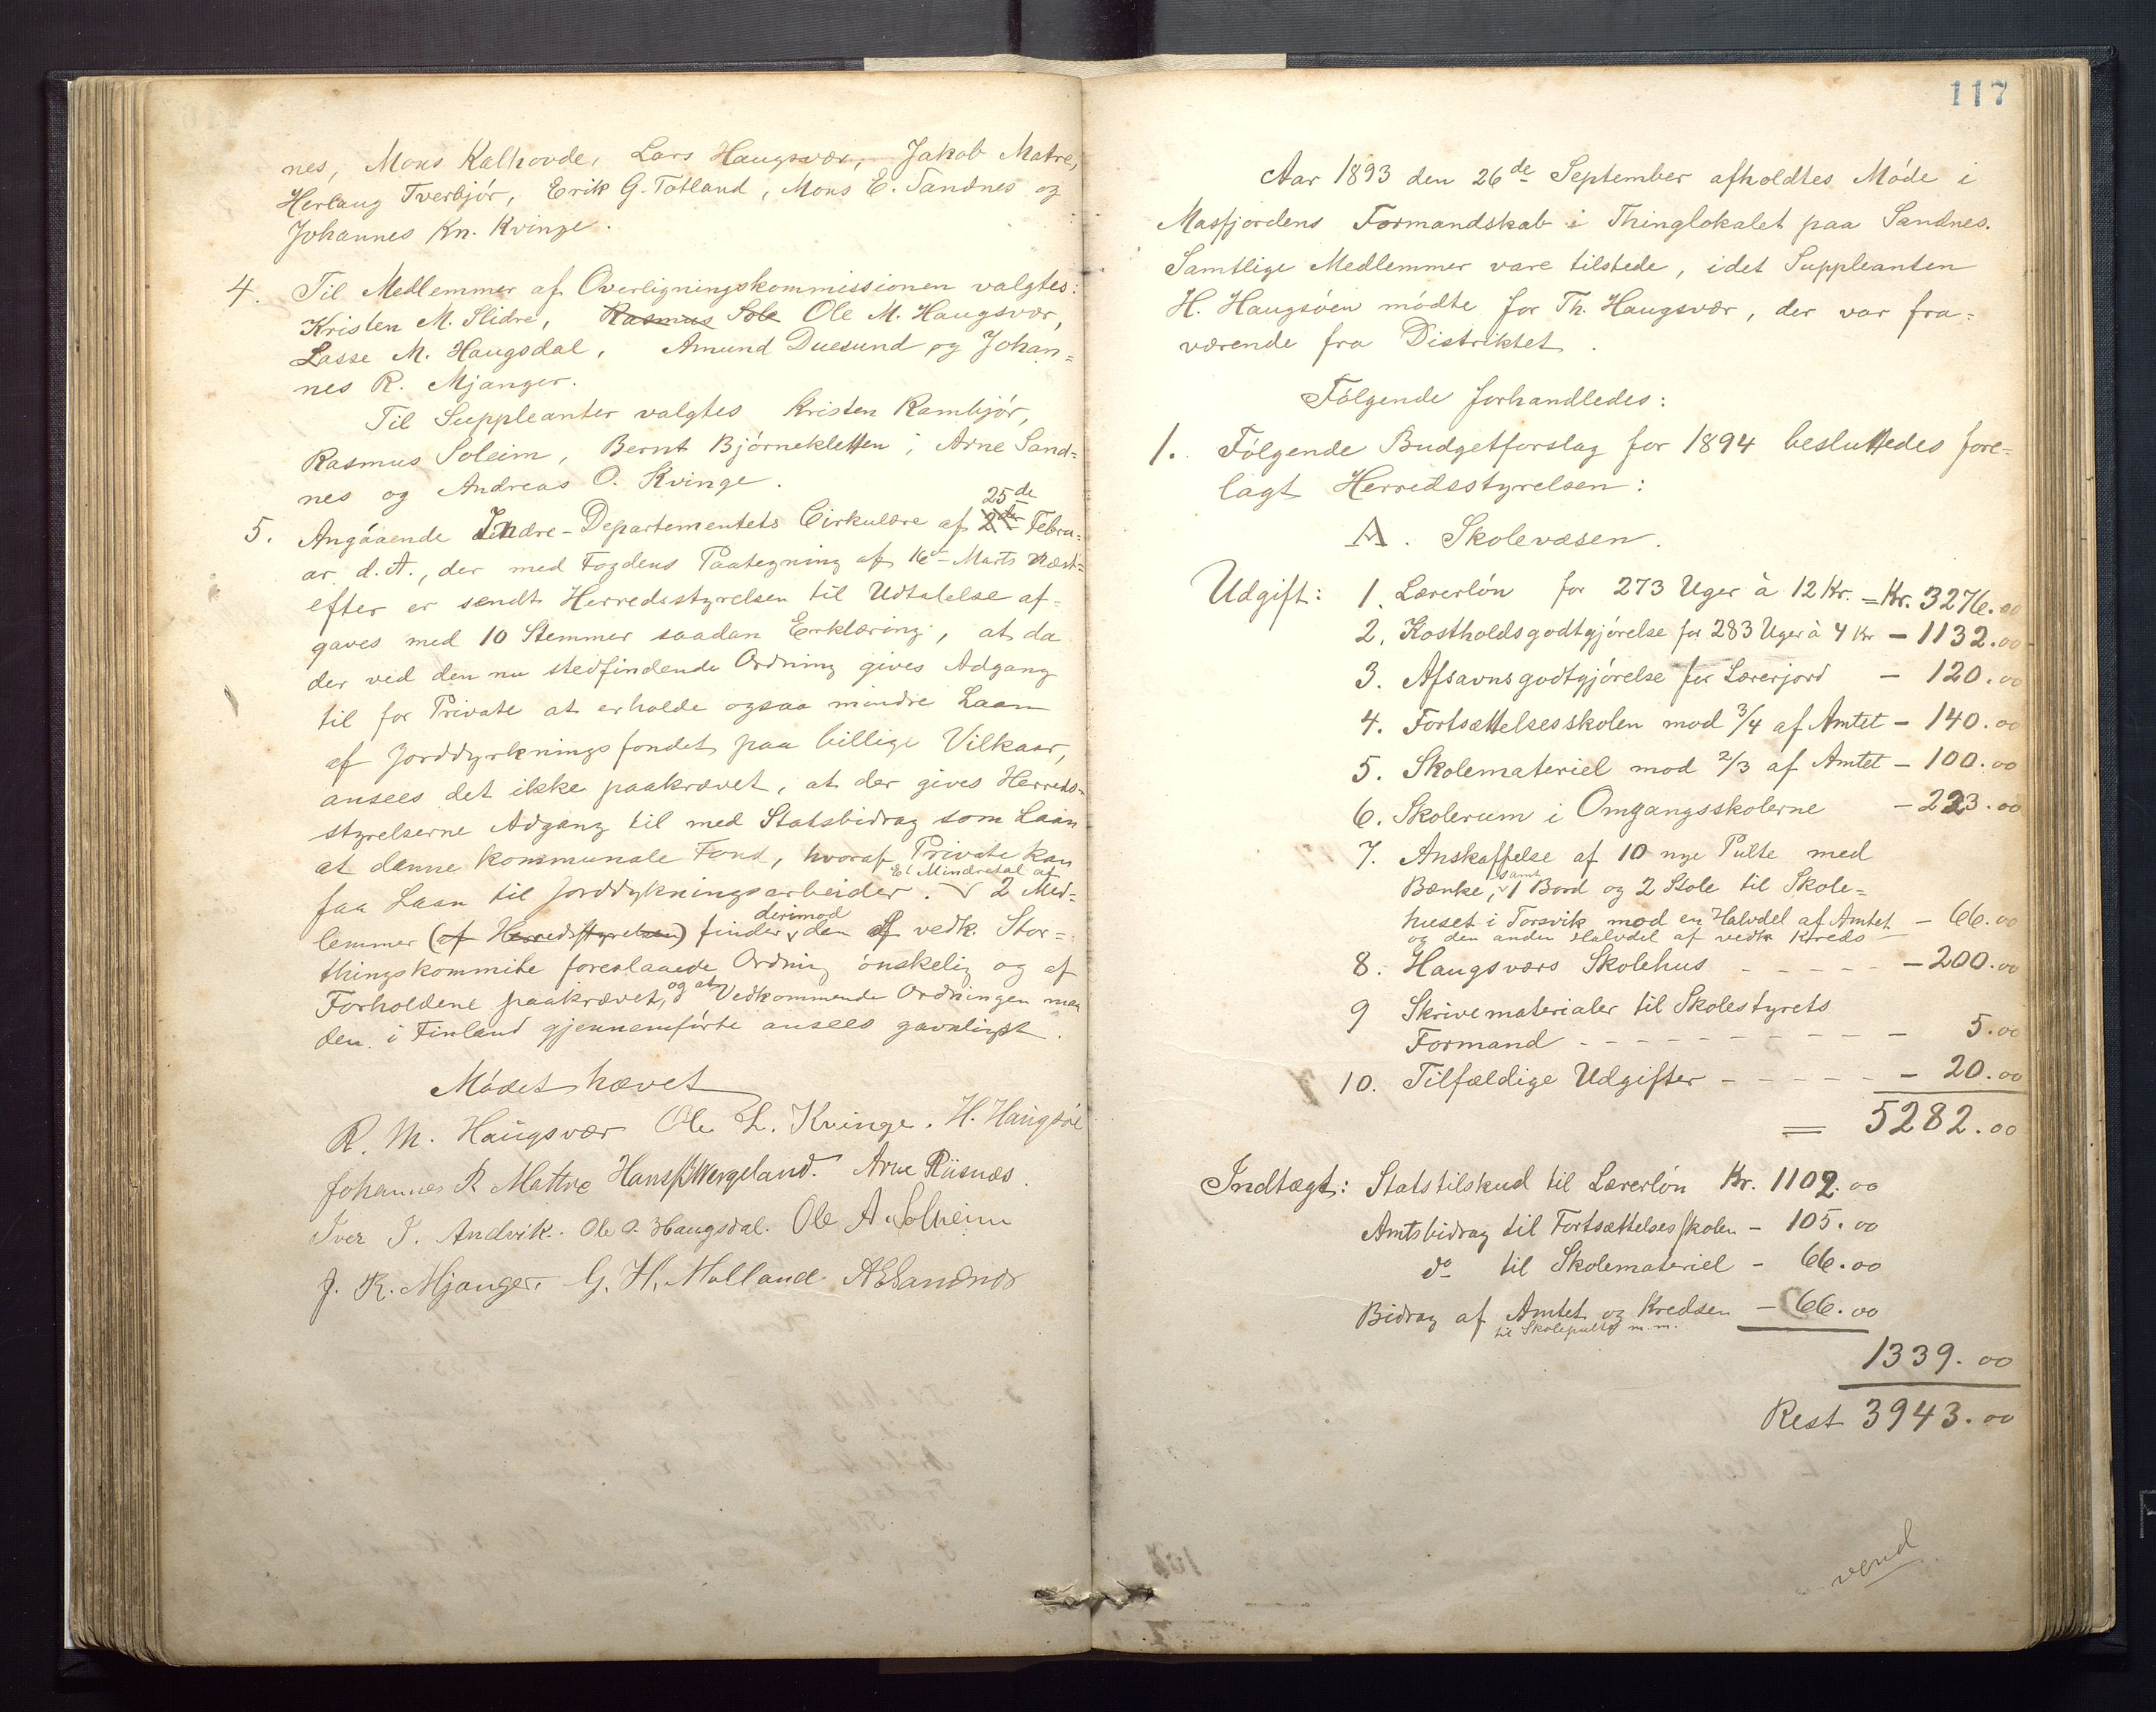 nes, Mons Kalhovde, Lars Haugsvær, Jakob Matre,
Herlaug Tverbjör, Erik G. Totland, Mons E. Sandnes og
Johannes Kn. Kvinge.
4. Til Medlemmer af Overligningskommissionen valgtes:
Kristen M. Slidre, Rasmus Sole Ole M. Haugsvær,
Lasse M. Haugsdal, Amund Duesund og Johan=
nes R. Mjanger.
Til Suppleanter valgtes Kristen Kambjör,
Rasmus Soleim, Bernt Björnekletten, Arne Sand=
nes og Andreas O. Kvinge.
25de
5. Angåaende Indre-Departementets Cirkulære af 2den Febru=
ar d. A., der med Fogdens Paategning af 16de Marts næst=
efter er sendt Herredsstyrelsen til Udtalelse af=
gaves med 10 Stemmer saadan Erklæring, at da
der ved den nu stedfindende Ordning gives Adgang
til for Private at erholde ogsaa mindre Laan
af Jorddyrkningsfondet paa billige Vilkaar,
ansees det ikke paakrævet, at der gives Herreds=
styrelserne Adgang til med Statsbidrag som Laan
at danne kommunale Fond, hvoraf Private kan
Et Mindretal af
faa Laan til Jorddykningsarbeider. 2 Med=
derimod
lemmer (af Herredsstyrelsen) finder den af vedk. Stor=
thingskommite foreslaaede Ordning önskelig og af
Forholdene paakrævet, og at Vedkommende Ordningen maa
den i Finland gjennemförte ansees gavnligst.
Mödet hævet
R. M. Haugsvær Ole L. Kvinge. H. Haugsöe
Johannes R Mattre Hans Wergeland. Arne Riisnæs.
Iver I. Andvik. Ole O. Haugsdal. Ole A. Solheim
J. R. Mjanger. G. H. Molland AESandnes
117
Aar 1893 den 26de September afholdtes Möde i
Masfjordens Formandskab i Thinglokalet paa Sandnes.
Samtlige Medlemmer vare tilstede, idet Suppleanten
H. Haugsöen mödte for Th. Haugsvær, der var fra=
værende fra Distriktet.
Fölgende forhandledes:
1. Fölgende Budgetforslag for 1894 besluttedes fore=
lagt Herredsstyrelsen:
A. Skolevæsen.
Udgift: 1. Lærerlön for 273 Uger à 12 Kr. = Kr. 3276.00
2. Kostholdsgodtgjörelse for 283 Uger à 4 Kr - 1132.00
3. Afsavnsgodtgjörelse for Lærerjord - 120.00
4. Fortsættelsesskolen mod 3/4 af Amtet - 140.00
5. Skolemateriel mod 2/3 af Amtet - 100.00
6. Skolerum i Omgangsskolerne - 223.00
7. Anskaffelse af 10 nye Pulte med
samt
Bænke, 1 Bord og 2 Stole til Skole=
huset i Torsvik mod en Halvdel af Amtet - 66.00
og den anden Halvdel af vedk Kreds
8. Haugsværs Skolehus - - - - - 200.00
9 Skrivematerialer til Skolestyrets
Formand - - - - - - - - - - 5.00
10. Tilfældige Udgifter - - - - - - 20.00
= 5282.00
Indtægt: Statstilskud til Lærerlön Kr. 1102.00
Amtsbidrag til Fortsættelsesskolen - 105.00
do til Skolemateriel - 66.00
Bidrag af Amtet og Kredsen - 66.00
til Skolepulte m.m.
1339.00
Rest 3943.00
vend